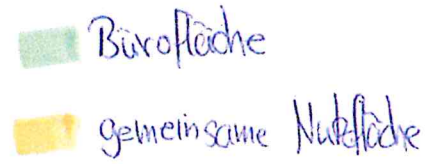 Bürofläche
gemeinsame Nutzfläche